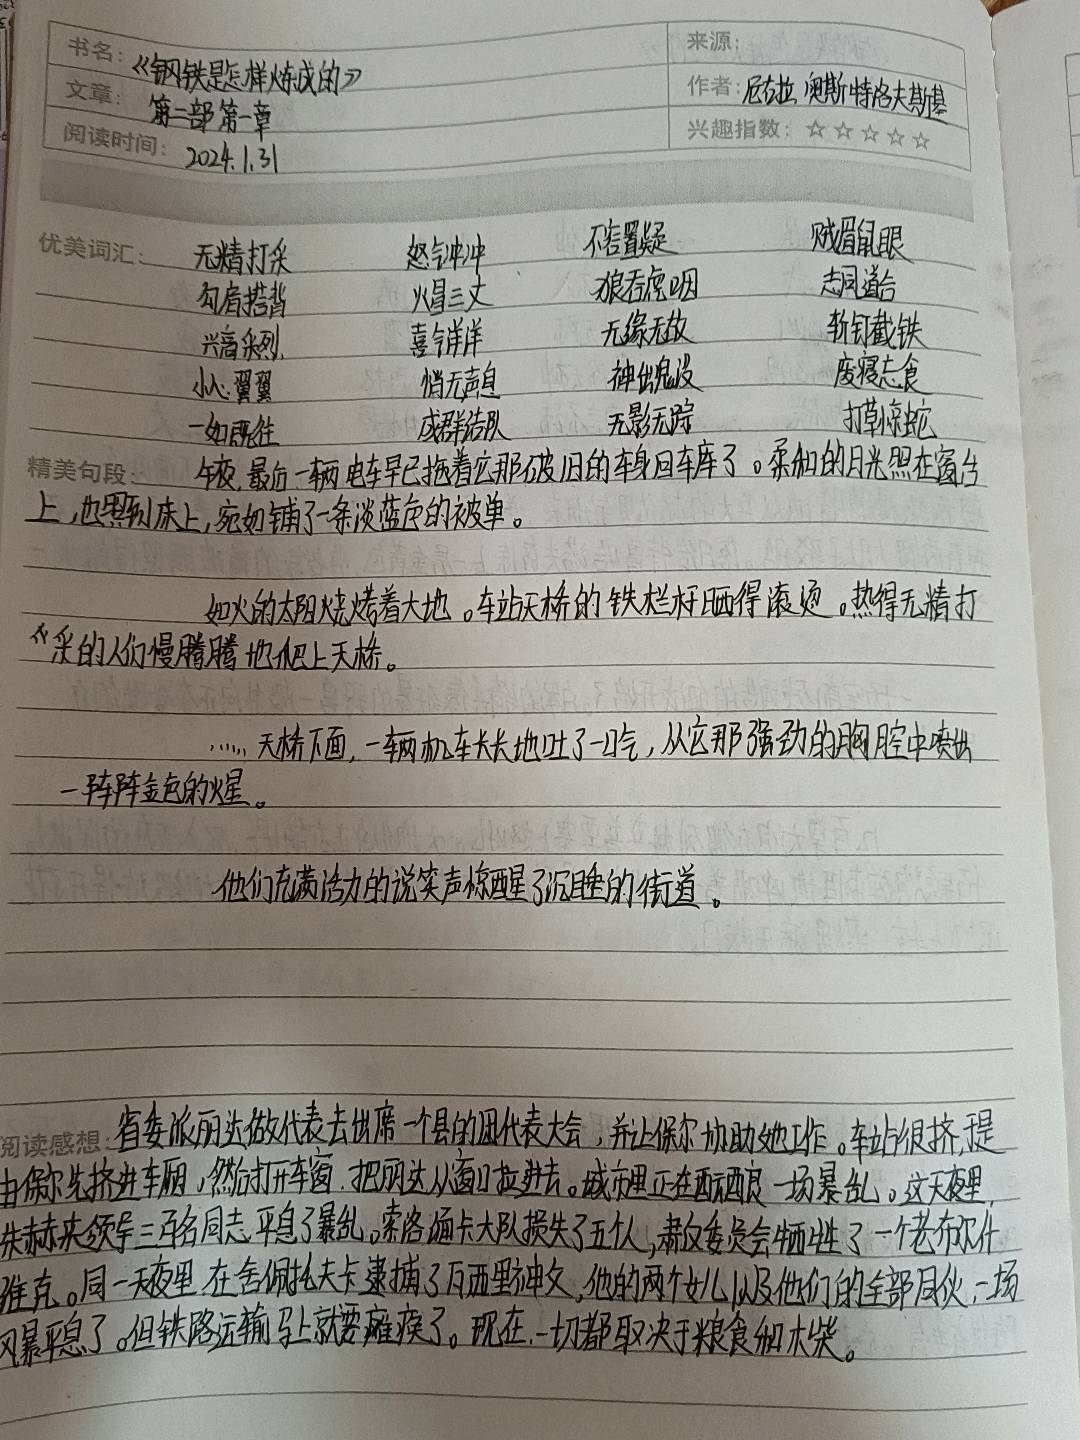 书名：《钢铁是怎样炼成的》 来源：
文章：第二部第一章 作者：尼古拉·奥斯特洛夫斯基
阅读时间：2024.1.31 兴趣指数：☆☆☆☆☆
优美词汇： 无精打采 怒气冲冲 不容置疑 贼眉鼠眼
勾肩搭背 火冒三丈 狼吞虎咽 志同道合
兴高采烈 喜气洋洋 无缘无故 斩钉截铁
小心翼翼 悄无声息 神出鬼没 废寝忘食
一如既往 成群结队 无影无踪 打草惊蛇
精美句段： 午夜，最后一辆电车早已拖着它那破旧的车身回车库了。柔和的月光照在窗台
上，也照到床上，宛如铺了一条淡蓝色的被单。
如火的太阳烧烤着大地。车站天桥的铁栏杆晒得滚烫。热得无精打
采的人们慢腾腾地爬上天桥。
……天桥下面，一辆机车长长地吐了一口气，从它那强劲的胸腔中喷出
一阵阵金色的火星。
他们充满活力的说笑声惊醒了沉睡的街道。
阅读感想：省委派丽达做代表去出席一个县的团代表大会，并让保尔协助她工作。车站很挤，提
由保尔先挤进车厢，然后打开车窗，把丽达从窗口拉进去。城市里正在酝酿一场暴乱。这天夜里，
朱赫来领导三百名同志平息了暴乱。索洛缅卡大队损失了五个人，肃反委员会牺牲了一个老布尔什
维克。同一天夜里，在舍佩托夫卡逮捕了瓦西里神父，他的两个女儿以及他们的全部同伙，一场
风暴平息了。但铁路运输马上就要瘫痪了。现在，一切都取决于粮食和木柴。